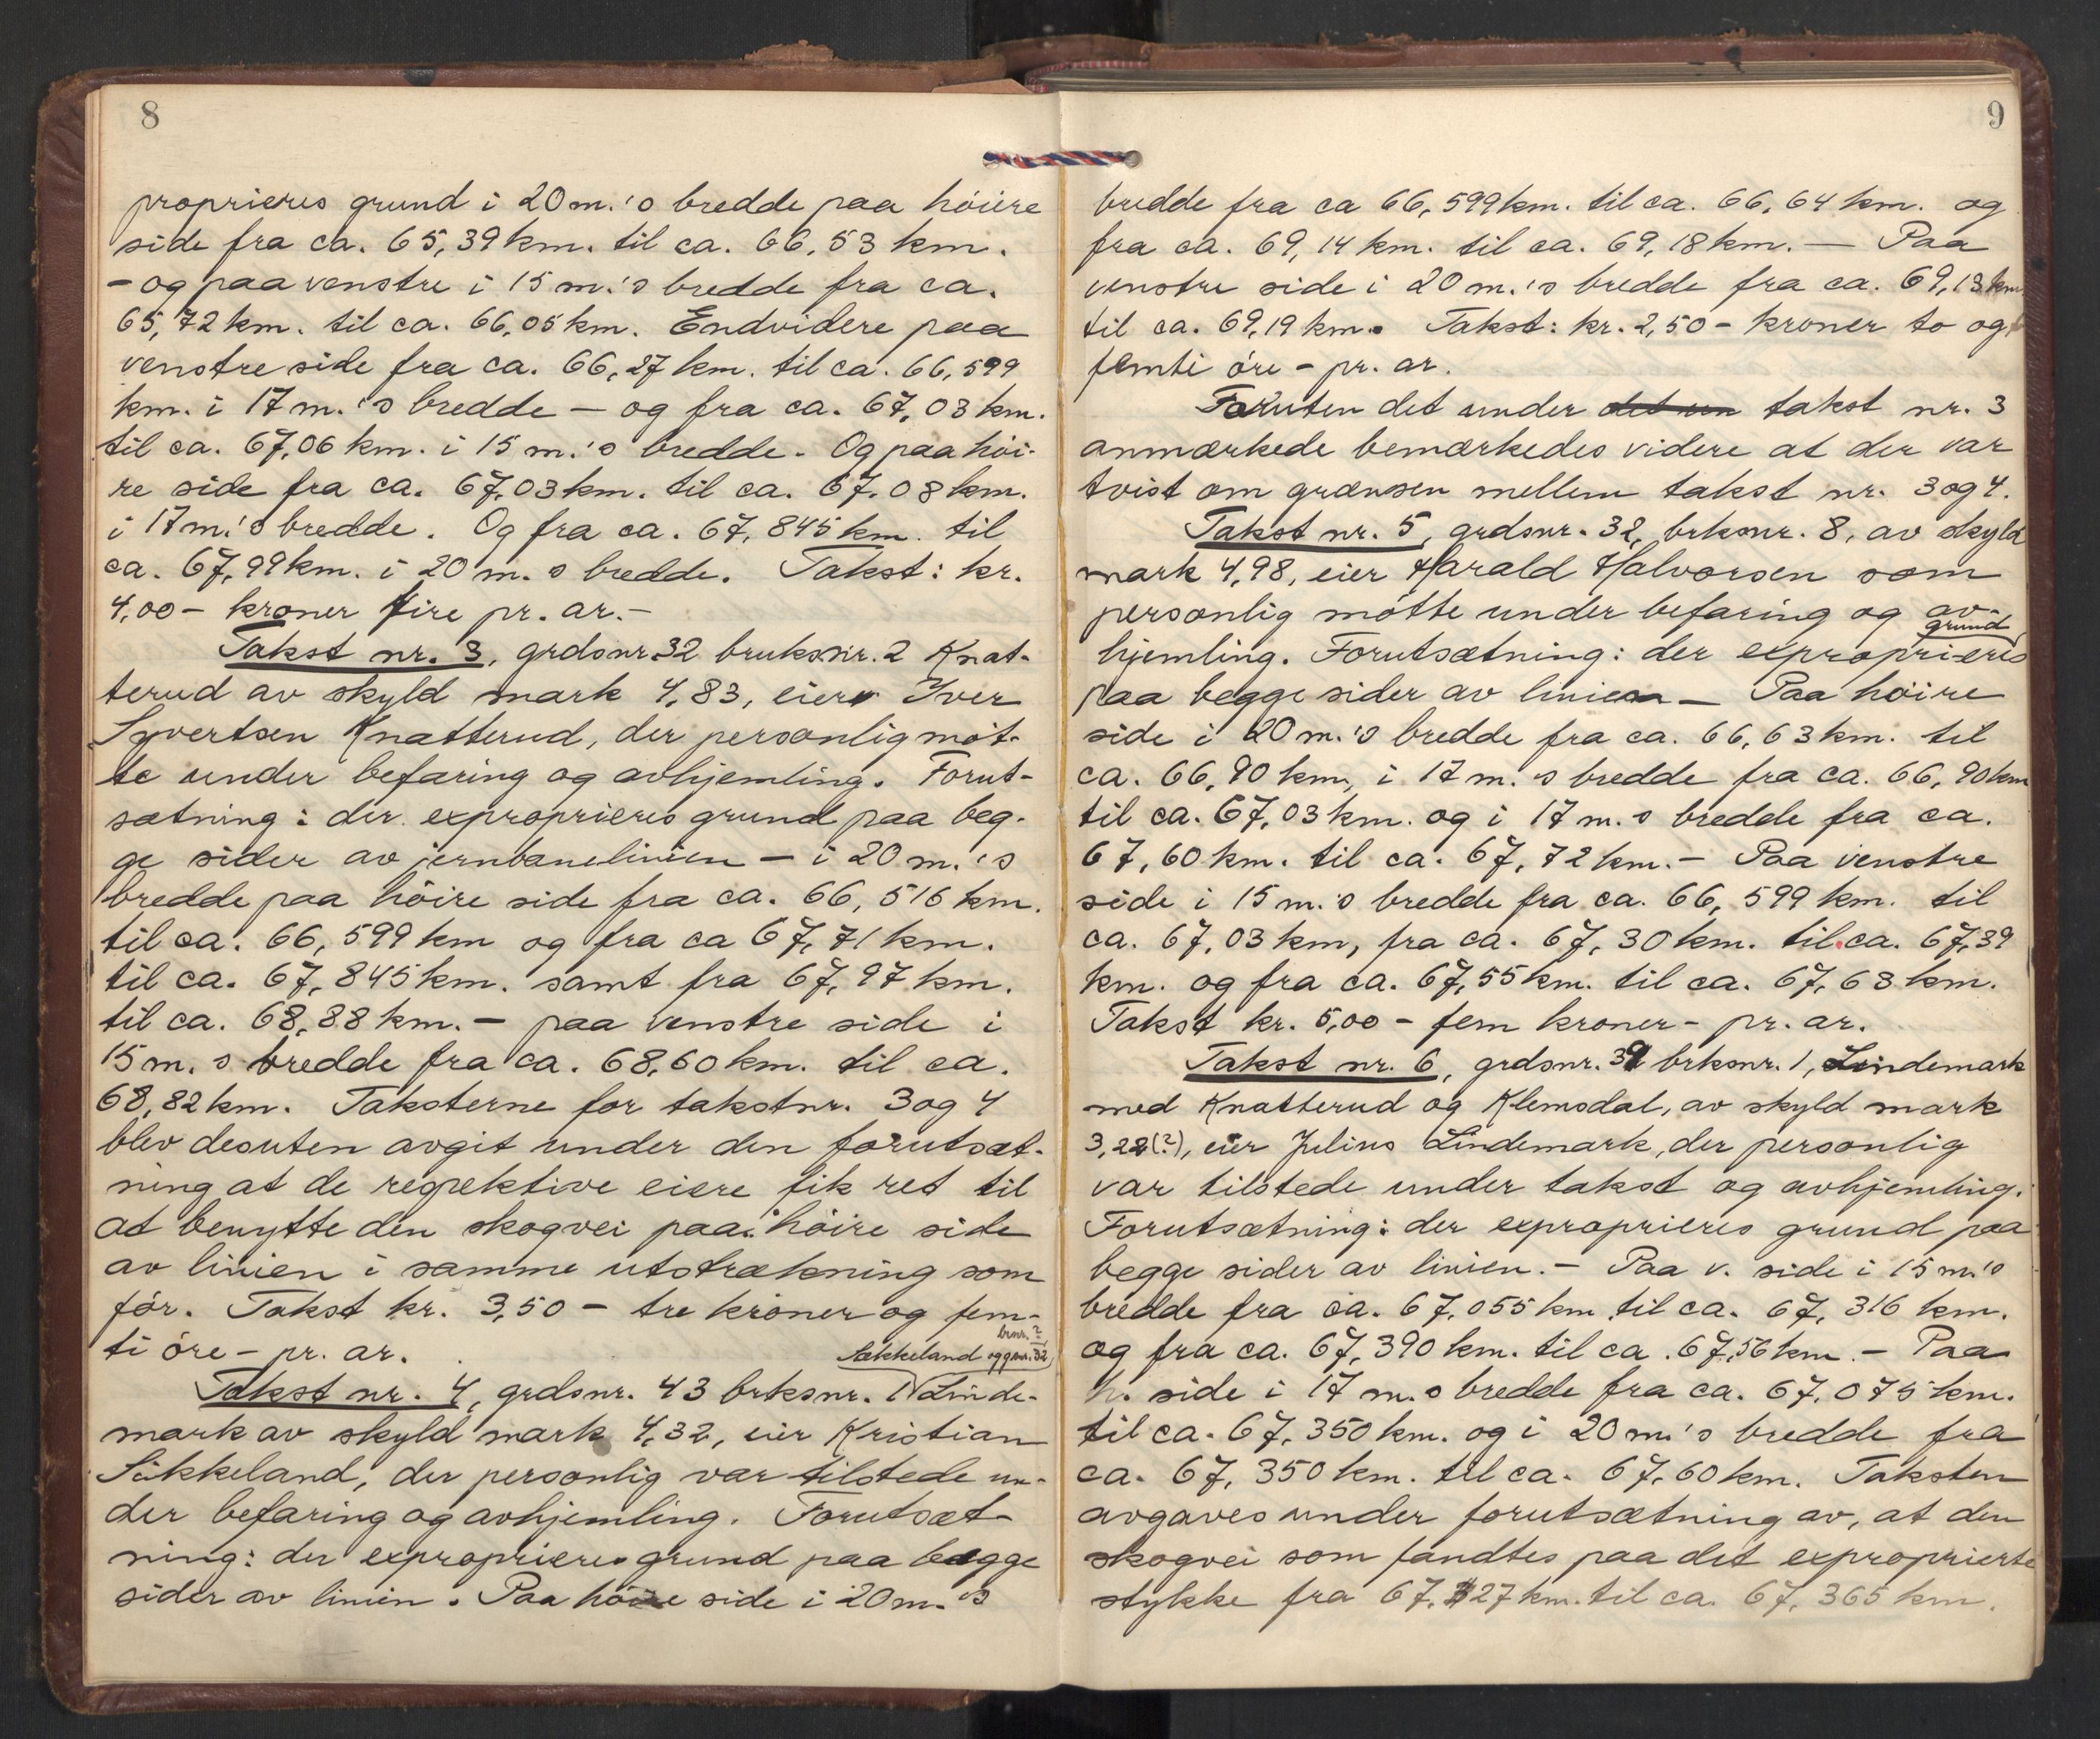 8
proprieres grund i 20 m.'s bredde paa höiere
side fra ca. 65,39 km. til ca. 66,53 km.
- og paa venstre i 15 m.'s bredde fra ca.
65,72 km. til ca. 66,05 km. Endvidere paa
venstre side fra ca. 66,27 km. til ca. 66,599
km. i 17 m.'s bredde — og fra ca. 67,03 km.
til ca. 67,06 km. i 15 m.'s bredde. Og paa höi-
re side fra ca. 67,03 km. til ca. 67,08 km.
i 17 m.'s bredde. Og fra ca. 67,845 km. til
ca. 67,99 km. i 20 m.s bredde. Takst: kr.
4,00 - kroner fire pr. ar. -
Takst nr. 3, grdsnr. 32 bruksnr. 2 Knat-
terud av skyld mark 4,83, eier Iver
Syvertsen Knatterud, der personlig möt-
te under befaring og avhjemling. Forut-
sætning: der exproprieres grund paa beg-
ge sider av jernbanelinien — i 20 m.'s
bredde paa höire side fra ca. 66,516 km.
til ca. 66,599 km og fra ca 67,71 km.
til ca. 67,845 km. samt fra 67,97 km.
til ca. 68,88 km. — paa venstre side i
15 m.s bredde fra ca. 68,60 km. til ca.
68,82 km. Taksterne for takstnr. 3 og 4
blev desuten avgit under den forutsæt-
ning at de respektive eiere fik ret til
at benytte den skogvei paa höire side
av linien i samme utstrækning som
för. Takst kr. 3,50 - tre kroner og fem-
ti öre - pr. ar.
brnr. 2
Sækkeland og gnr. 32,
Takst nr. 4, grdsnr. 43 brksnr. 1 Linde-
mark av skyld mark 4,32, eier Kristian
Sikkeland, der personlig var tilstede un-
der befaring og avhjemling. Forutsæt-
ning: der exproprieres grund paa begge
sider av linien. Paa höire side i 20 m.'s
9
bredde fra ca 66,599 km. til ca. 66,64 km. og
fra ca. 69,14 km. til ca. 69,18 km. — Paa
venstre side i 20 m.'s bredde fra ca. 69,13 km
til ca. 69,19 km. Takst: kr. 2,50 - kroner to og
femti öre - pr. ar.
Foruten det under det un takst nr. 3
anmærkede bemærkedes videre at der var
tvist om grænsen mellem takst nr. 3 og 4.
Takst nr. 5, grdsnr. 32, brksnr. 8, av skyld
mark 4,98, eier Harald Halvorsen som
personlig mötte under befaring og av-
grund
hjemling. Forutsætning: der exproprieres
paa begge sider av linien — Paa höire
side i 20 m.'s bredde fra ca. 66,63 km. til
ca. 66,90 km, i 17 m.'s bredde fra ca. 66,90 km
til ca. 67,03 km. og i 17 m.s bredde fra ca.
67,60 km. til ca. 67,72 km. - Paa venstre
side i 15 m.'s bredde fra ca. 66,599 km. til
ca. 67,03 km, fra ca. 67,30 km. til ca. 67,39
km. og fra ca. 67,55 km. til ca. 67,63 km.
Takst kr. 5,00 - fem kroner - pr. ar.
Takst nr. 6, grdsnr. brksnr. 1, Lindemark
med Knatterud og Klemsdal, av skyld mark
3,22 (?), eier Julius Lindemark, der personlig
var tilstede under takst og avhjemling.
Forutsætning: der exproprieres grund paa
begge sider av linien. - Paa v. side i 15 m.'s
bredde fra ca. 67,055 km til ca. 67,316 km.
og fra ca. 67,390 km. til ca. 67,56 km. - Paa
h. side i 17 m.s bredde fra ca. 67,075 km.
til ca. 67,350 km. og i 20 m.'s bredde fra
ca. 67,350 km. til ca. 67,60 km. Taksten
avgaves under forutsætning av, at den
skogvei som fandtes paa det exproprierte
stykke fra 67,327 km. til ca. 67,365 km.